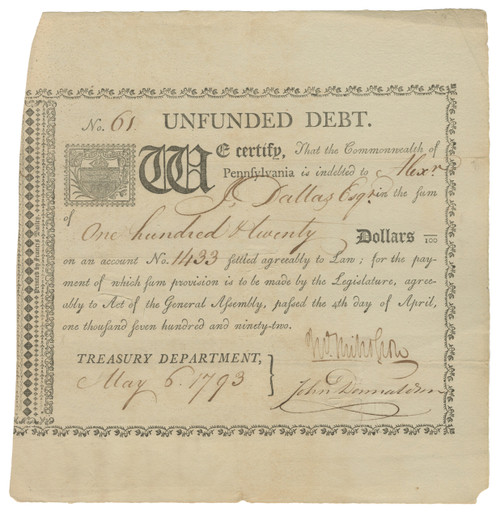 No. 61 UNFUNDED DEBT.
WE certify, That the Commonwealth of
Pennsylvania is indebted to Alexr
J. Dallas Esqr. in the sum
of One hundred & twenty Dollars /100
on an account No. 1433 settled agreeably to Law; for the pay-
ment of which sum provision is to be made by the Legislature, agree-
ably to Act of the General Assembly, passed the 4th day of April,
one thousand seven hundred and ninety-two.
TREASURY DEPARTMENT,
May 6. 1793
Jno. Nicholson
John Donnaldson